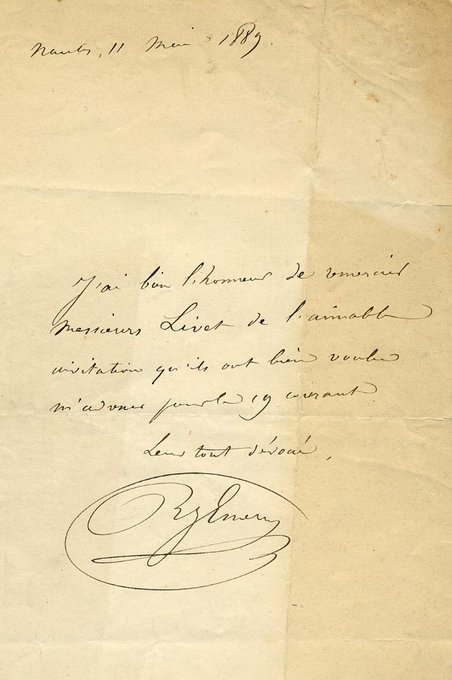 Nantes, 11 Mai 1889.
J'ai bien l'honneur de remercier
Messieurs Livet de l'aimable
invitation qu'ils ont bien voulu
m'adresser pour le 19 courant.
Leur tout dévoué,